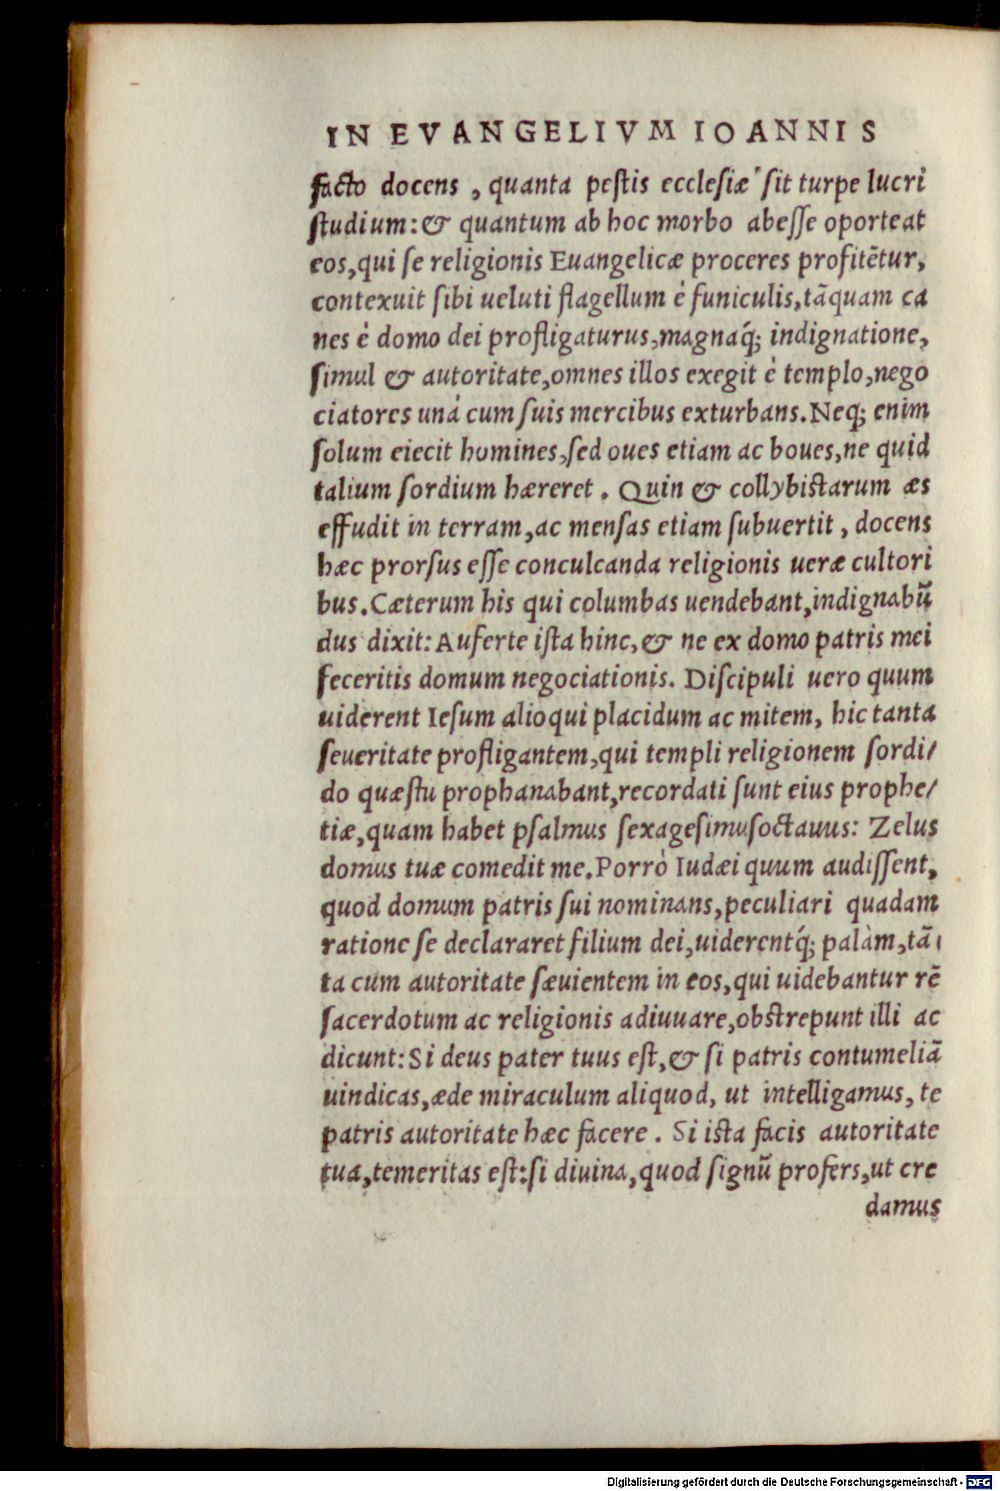 IN EVANGELIVM IOANNIS
facto docens , quanta pestis ecclesiæ sit turpe lucri
studium: & quantum ab hoc morbo abesse oporteat
eos,qui se religionis Euangelicæ proceres profitētur,
contexuit sibi ueluti flagellum è funiculis,tāquam ca
nes è domo dei profligaturus,magnaq́; indignatione,
simul & autoritate,omnes illos exegit è templo,nego
ciatores unà cum suis mercibus exturbans.Neq; enim
solum eiecit homines,sed oues etiam ac boues,ne quid
talium sordium hæreret . Quin & collybistarum æs
effudit in terram,ac mensas etiam subuertit , docens
hæc prorsus esse conculcanda religionis ueræ cultori
bus.Cæterum his qui columbas uendebant,indignabū
dus dixit: Auferte ista hinc,& ne ex domo patris mei
feceritis domum negociationis. Discipuli uero quum
uiderent Iesum alioqui placidum ac mitem, hic tanta
seueritate profligantem,qui templi religionem sordi/
do quæstu prophanabant,recordati sunt eius prophe/
tiæ,quam habet psalmus sexagesimusoctauus: Zelus
domus tuæ comedit me.Porrò Iudæi quum audissent,
quod domum patris sui nominans,peculiari quadam
ratione se declararet filium dei,uiderentq́; palàm,tā
ta cum autoritate sæuientem in eos,qui uidebantur rē
sacerdotum ac religionis adiuuare,obstrepunt illi ac
dicunt: Si deus pater tuus est,& si patris contumeliā
uindicas,æde miraculum aliquod, ut intelligamus, te
patris autoritate hæc facere . Si ista facis autoritate
tua,temeritas est:si diuina,quod signū profers,ut cre
damus
Digitalisierung gefördert durch die Deutsche Forschungsgemeinschaft - DFG